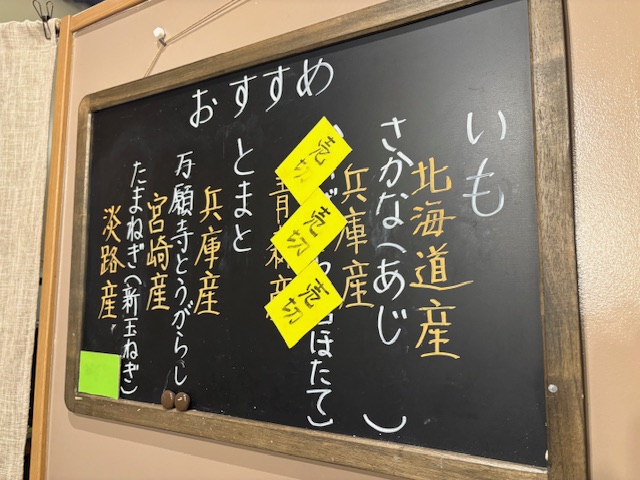 おすすめ
いも
北海道産
さかな(あじ )
兵庫産
ほたて)
売切
売切
売切
とまと
兵庫産
万願寺とうがらし
宮崎産
たまねぎ(新玉ねぎ)
淡路産